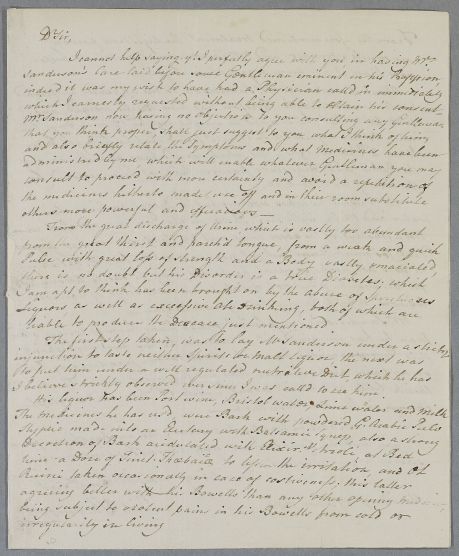 Dr Sir,
I cannot help saying yt I perfectly agree with you in having Mr
Sanderson's Case laid before some Gentleman eminent in his Profession
indeed it was my wish to have had a Physician call'd in immediately
which I earnestly requested without being able to obtain his consent.
Mr Sanderson now having no objection to you consulting any Gentleman
that you think proper, shall just suggest to you what I think of him
and also briefly relate the Symptoms and what Medicines have been
administred by me which will enable whatever Gentleman you may
consult to proceed with more certainty and avoid a repetition of
the medicines hitherto made use off and in their room substitute
others more powerful and efficacious —
From the great discharge of Urine which is vastly too abundant
from the great thirst and parch'd tongue, from a weak and quick
Pulse with great loss of strength and a Body vastly emaciated
there is no doubt but his Disorder is a true Diabetes; which
I am apt to think has been brought on by the abuse of Spirituous
Liquors as well as excessive Ale drinking, both of which are
liable to produce the Disease just mentioned.
The first step taken, was to lay Mr Sanderson under a strict
injunction to taste neither Spirits or Malt Liquor, the next was
to put him under a well regulated nutritive Diet, which he has
I believe strictly observed ever since I was call'd to see him.
His liquor has been Port wine, Bristol water, Lime water and Milk
The medicines he has used were Bark with powder'd G. Arabic
Styptic made into an Electuary with Balsamic Syrup, also a strong
Decoction of Bark acidulated with Elixir Vitriole, at Bed
time a Dose of Tinct. Thebaic to lessen the irritation, and Ol
Ricini taken occasionally in case of costiveness, this latter
agreeing better with his Bowells than any other opening medicine
being subject to violent pain in his Bowells from cold or
irregularity in living